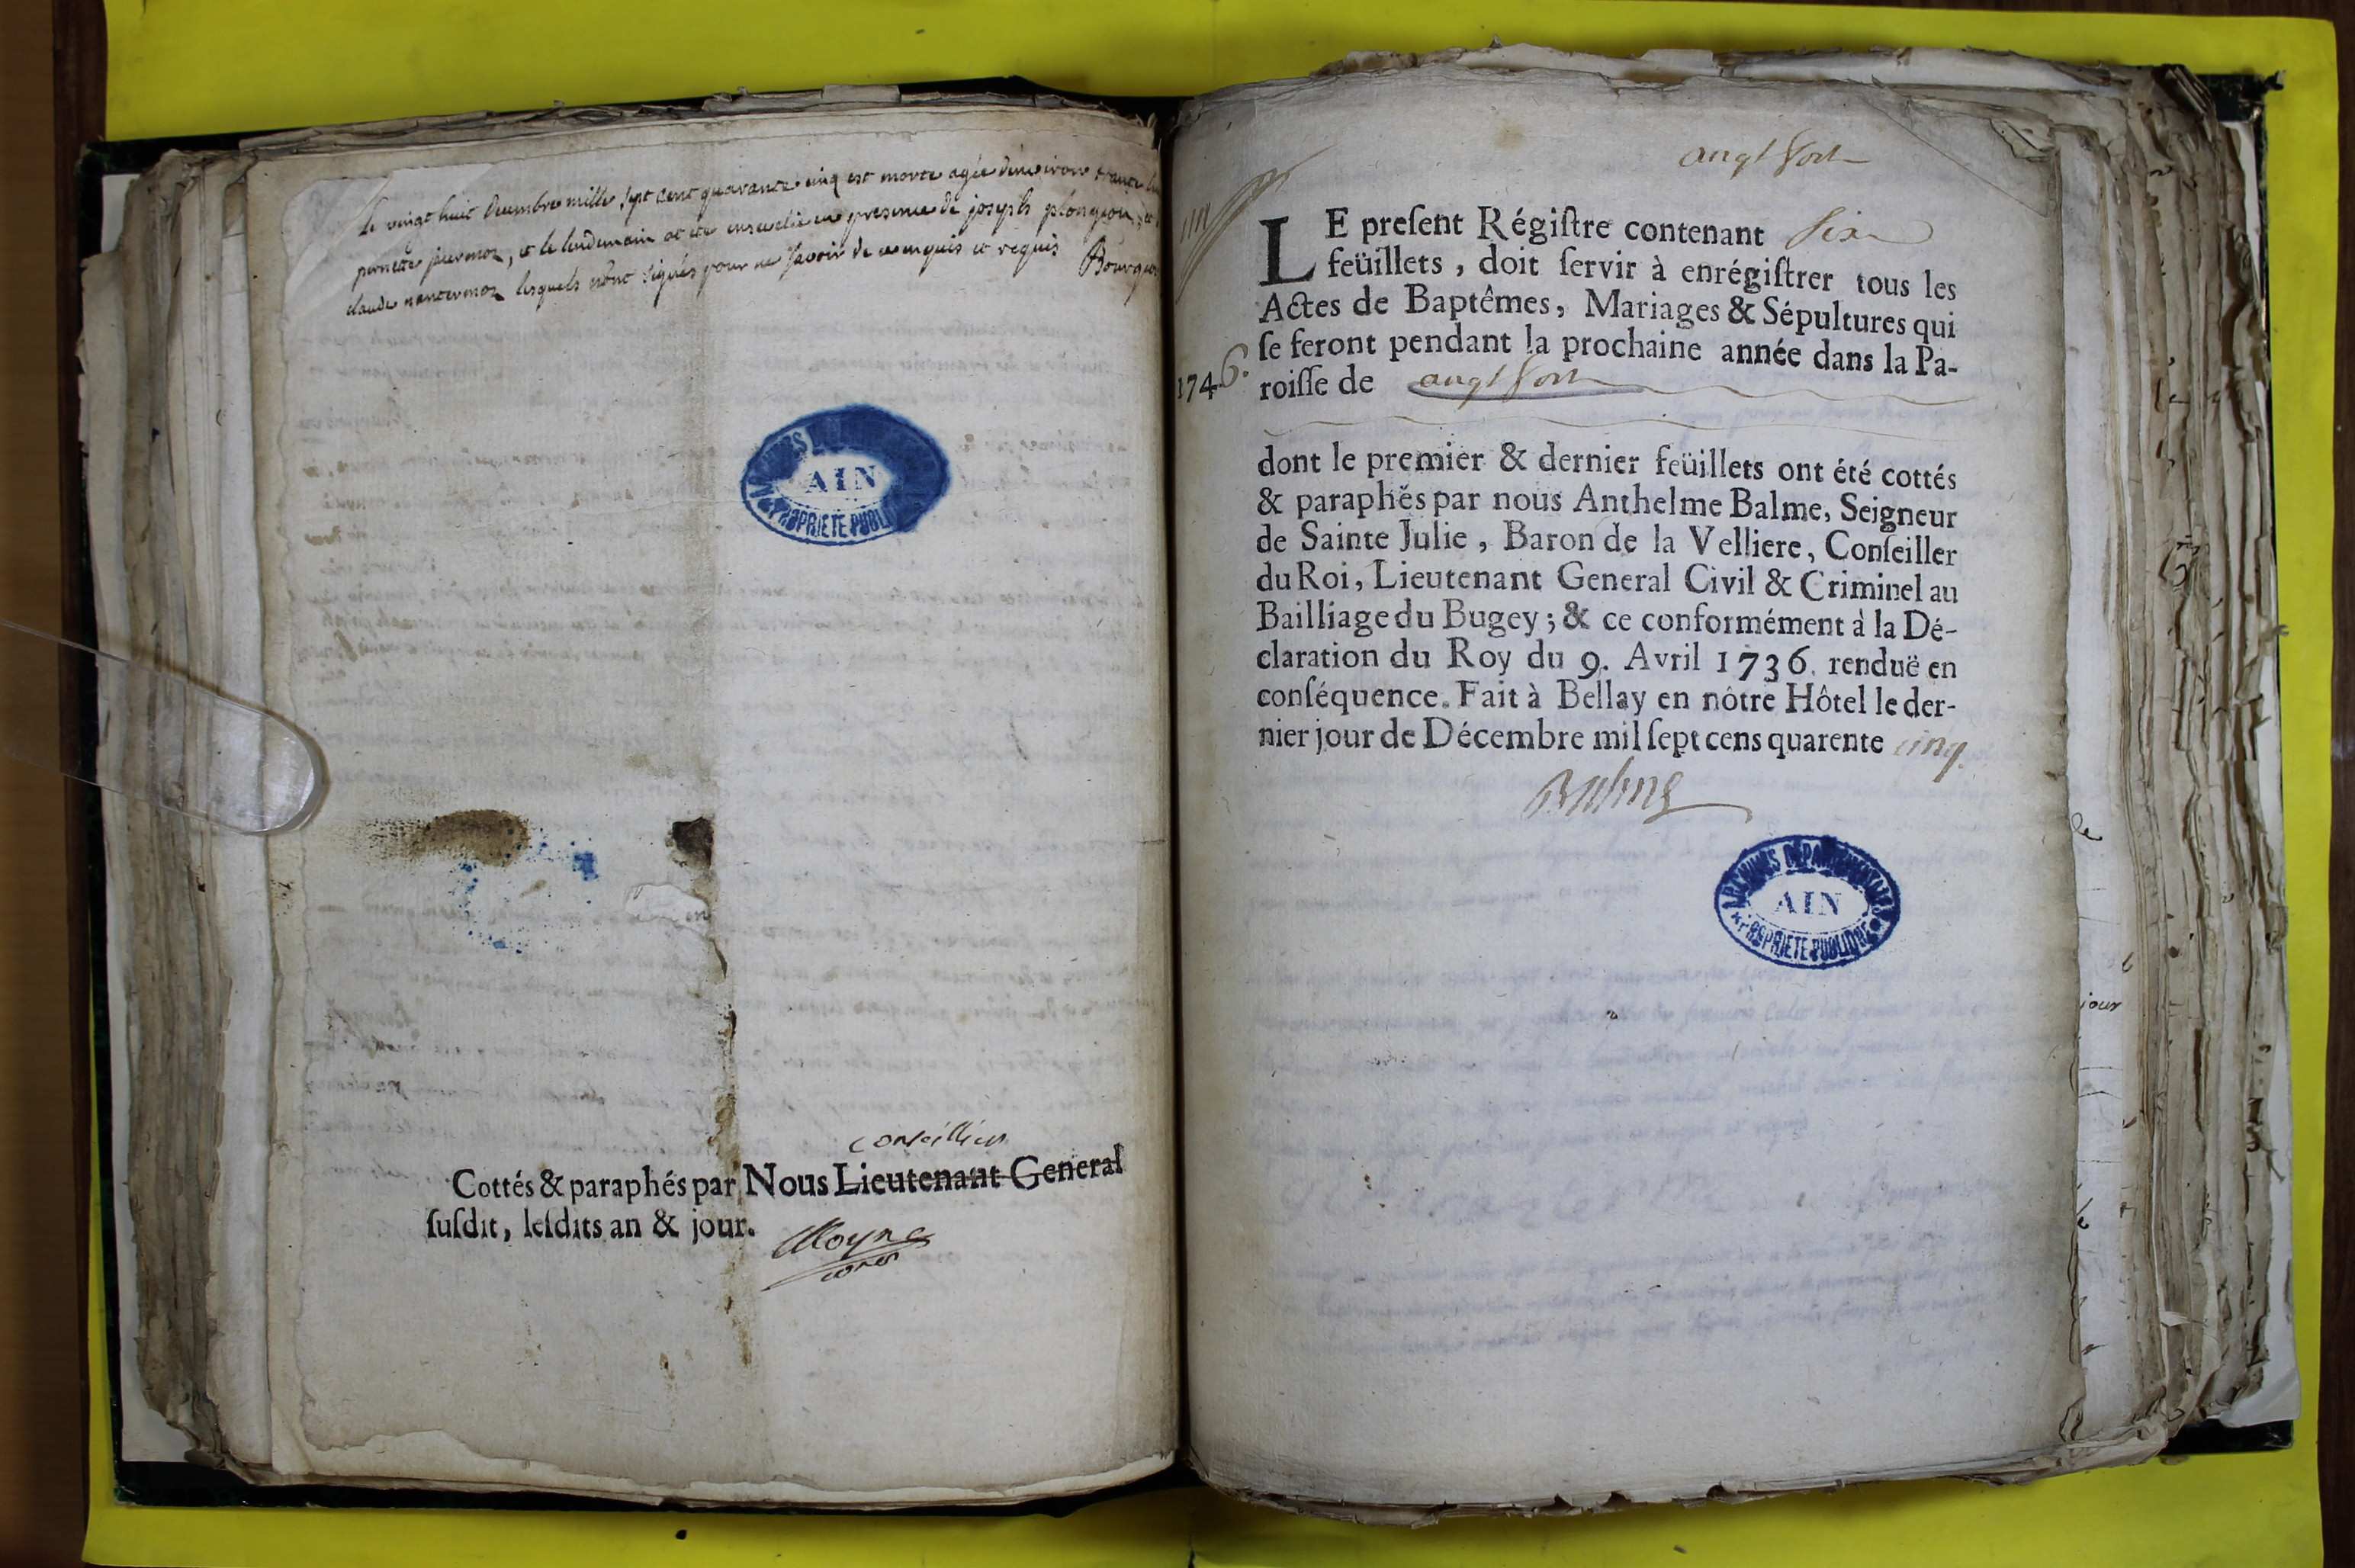 Le vingt huit decembre mille sept cent quarante cinq est morte agée denviron trante
pernette juermoz, et le lendemain at ete ensevelie en presence de joseph plongeon, et
claude nantermoz lesquels nont signés pour ne savoir de ce enquis et requis
AIN
PROPRIETE PUBLI
conseillier
Cottés & paraphés par Nous Lieutenant General
ſuſdit, leſdits an & jour.
Moyne
anglefort
LE preſent Régiſtre contenant Six
feüillets, doit ſervir à enrégiſtrer tous les
Actes de Baptêmes, Mariages & Sépultures qui
ſe feront pendant la prochaine année dans la Pa-
1746.
roiſſe de anglefort
dont le premier & dernier feüillets ont été cottés
& paraphés par nous Anthelme Balme, Seigneur
de Sainte Julie, Baron de la Velliere, Conſeiller
du Roi, Lieutenant General Civil & Criminel au
Bailliage du Bugey; & ce conformément à la Dé-
claration du Roy du 9. Avril 1736. renduë en
conſéquence. Fait à Bellay en nôtre Hôtel le der-
nier jour de Décembre mil ſept cens quarente cinq.
Balme
ARCHIVES DEPARTEMENTALES
AIN
PROPRIETE PUBLIQUE
jour